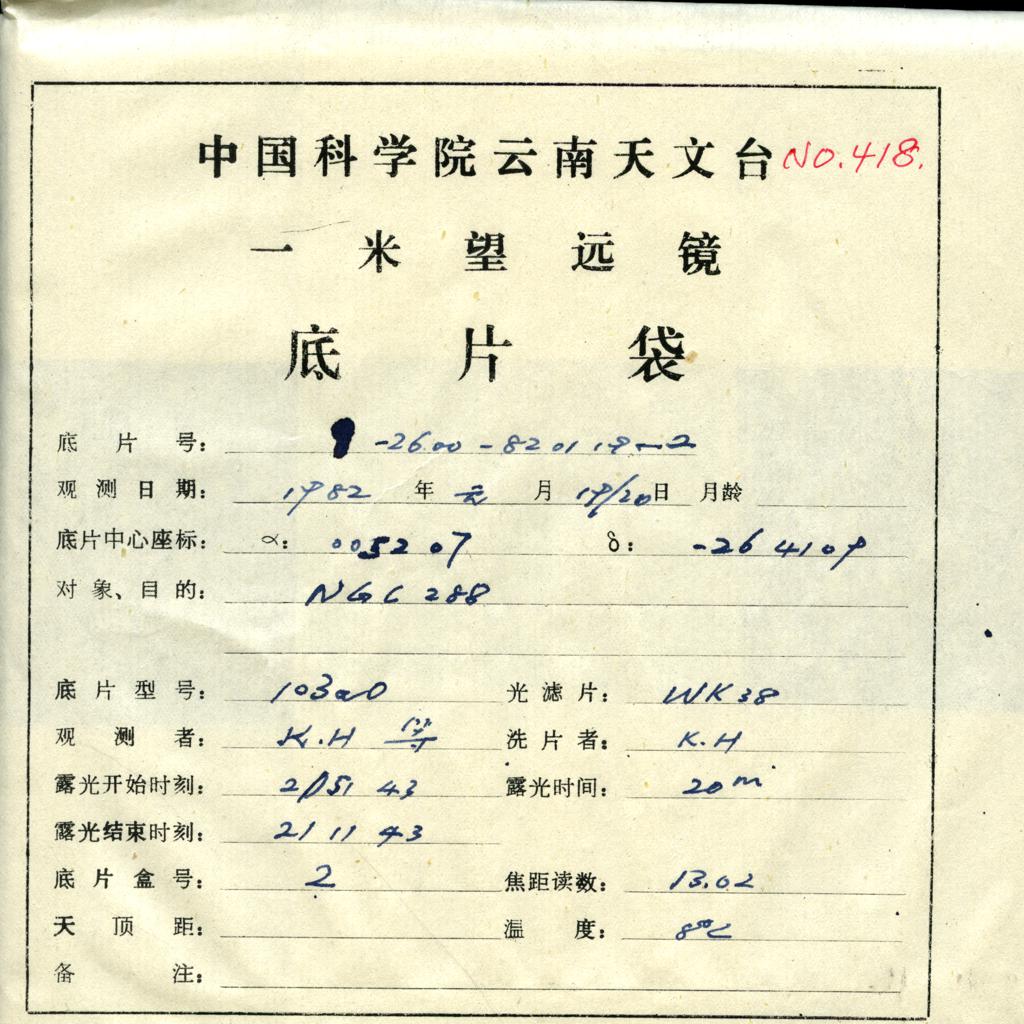 中国科学院云南天文台 NO.418.
一米望远镜
底片袋
底片号： -2600-820119-2
观测日期： 1982 年 元 月 19/20 日 月龄
底片中心座标： α： 005207 δ： -26 41 09
对象、目的： NGC 288
底片型号： 103aO 光滤片： WK38
观测者： K.H 洗片者： K.H
露光开始时刻： 51 43 露光时间： 20m
露光结束时刻： 21 11 43
底片盒号： 2 焦距读数： 13.02
天顶距： 温度： 8℃
备注：